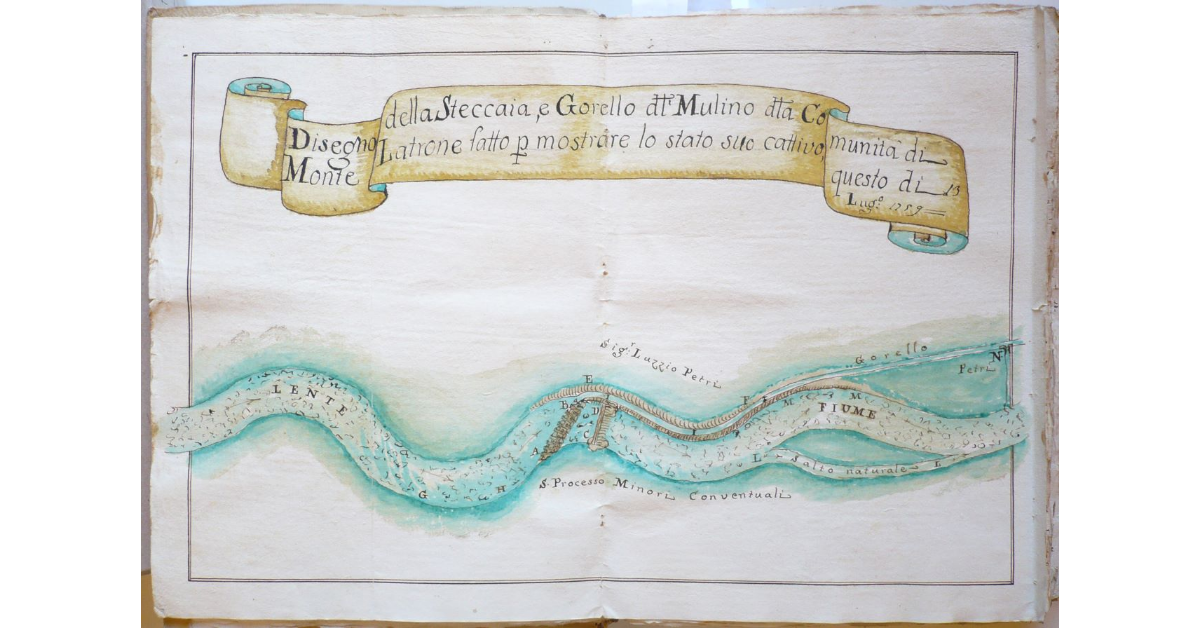 Disegno della Steccaia, e Gorello dtt. Mulino dta Comunità di
Monte Latrone fatto p mostrare lo stato suo cattivo, questo di 13
Lug.º 1759
Sig.r Luzzio Petri
Gorello
N
Petri
LENTE
E
B
D
F
M
M
FIUME
A
C
I
G
H
L
Salto naturale
L
S. Processo Minori Conventuali